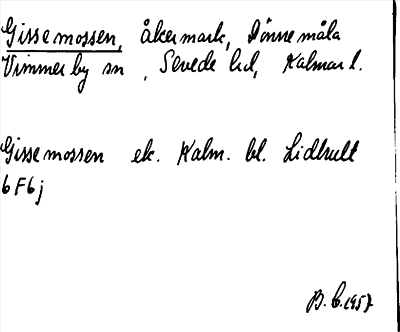 Gissemossen, åkermark, Dönnemåla
Vimmerby sn, Sevede hd, Kalmar l.
Gissemossen ek. Kalm. bl. Lidhult
6F6j
B.C.1957